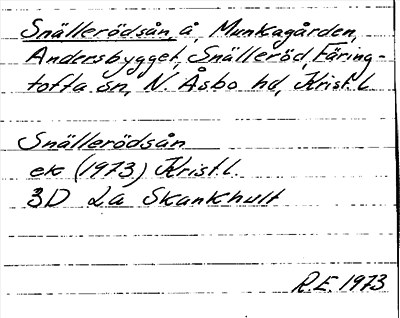 Snällerödsån, å, Munkagården,
Andersbygget, Snälleröd, Färing-
tofta sn, N. Åsbo hd, Krist. l.
Snällerödsån
ek (1973) Krist. l.
3D La Skankhult
R.E. 1973